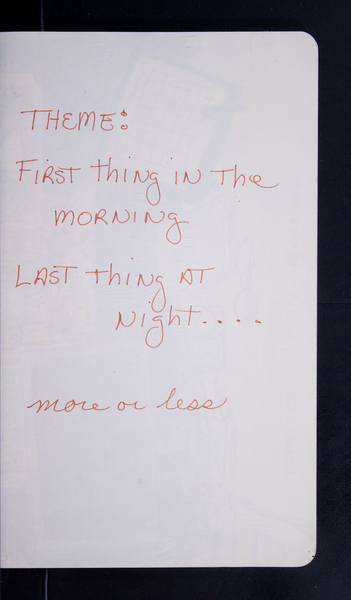 THEME:
FIRST thing IN The
MORNING
LAST thing AT
Night....
more or less